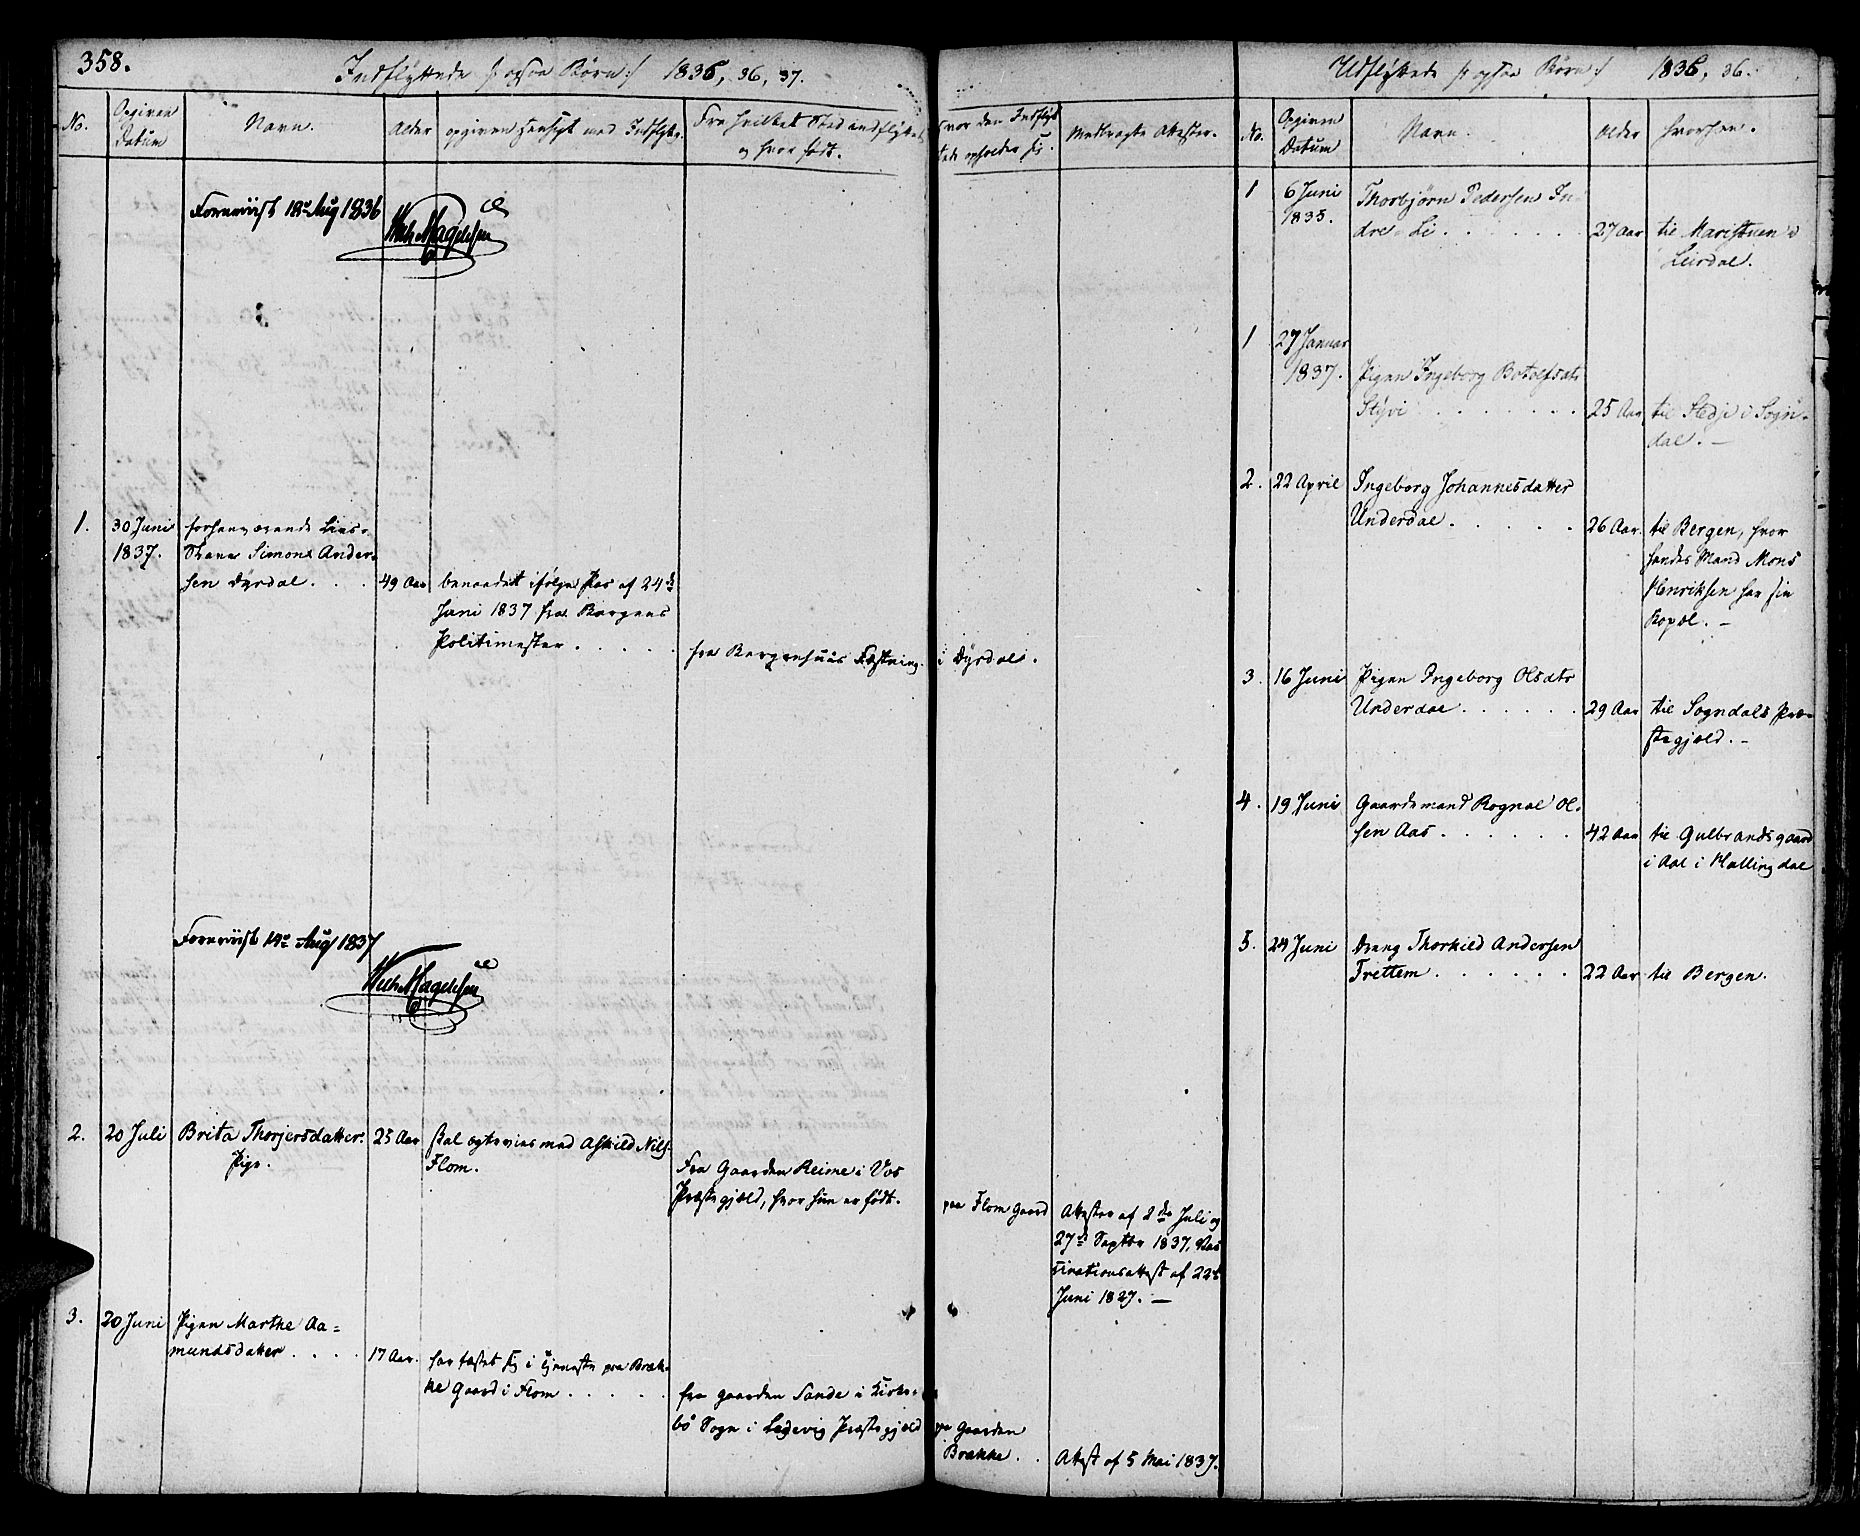 358.
Indflyttede /: ogsaa Børn :/ 1835, 36, 37.
No.
Opgiven Datum
Navn.
Alder
opgiven Hensigt med Indflytn.
Fra hvilket Sted indflyttet
og hvor født.
hvor den Indflyt
tede opholder sig.
Medbragte Attester.
Fremviist 18de Aug 1836
Wilh. Magelssen
1.
30 Juni
1837.
forhenværende Lins-
Simon Ander-
sen Dyrdal . . .
49 Aar
benaadet ifølge Pas af 24de
Juni 1837 fra Bergens
Politimester . . . . .
fra Bergenhuus Fæstning.
i Dyrdal.
Fremviist 14de Aug 1837
Wilh. Magelssen
2.
20 Juli
Brita Thorjersdatter.
Pige.
23 Aar
skal ægtevies med Askild Nils.
Flom.
Fra Gaarden Reime i Vos
Præstegjæld, hvor hun er født.
paa Flom Gaard
Attester af 2de Juli og
27de Septbr 1837, Vac-
cinationsattest af 22de
Juni 1827. —
3.
20 Juni
Pigen Marthe Aa=
mundsdatter . . . .
17 Aar.
har fæstet sig i Tjeneste paa Bræk-
ke Gaard i Flom . . . . .
fra Gaarden Sande i Kirke-
bö Sogn i Ladevig Præstegjæld
paa Gaarden
Brække . .
Attest af 5 Mai 1837.
Udflyttede /: ogsaa Børn :/ 1835, 36.
No.
Opgiven
Datum
Navn.
Alder
Hvorhen.
1
6 Juni
1835.
Thorbjørn Pedersen In
dre-Li . . . . . .
27 Aar
til Maristuen i
Leirdal.
1
27 Januar
1837.
Pigen Ingeborg Botolfsdtr
Styvi . . . . . . .
25 Aar
til Stedje i Sogn-
dal. —
2.
22 April
Ingeborg Johannesdatter
Underdal . . . . .
26 Aar.
til Bergen, hvor
hendes Mand Mons
Henriksen har sin
Bopæl. —
3.
16 Juni
Pigen Ingeborg Olsdtr
Underdal . . . . . .
29 Aar
til Sogndals Præ-
stegjæld. —
4.
19 Juni
Gaardmand Rognal Ol-
sen Aas . . . . . .
42 Aar
til Gulbrandsgaard
i Aal i Hallingdal
5.
24 Juni
Dreng Thorkild Andersen
Frettem . . . . . .
22 Aar
til Bergen.